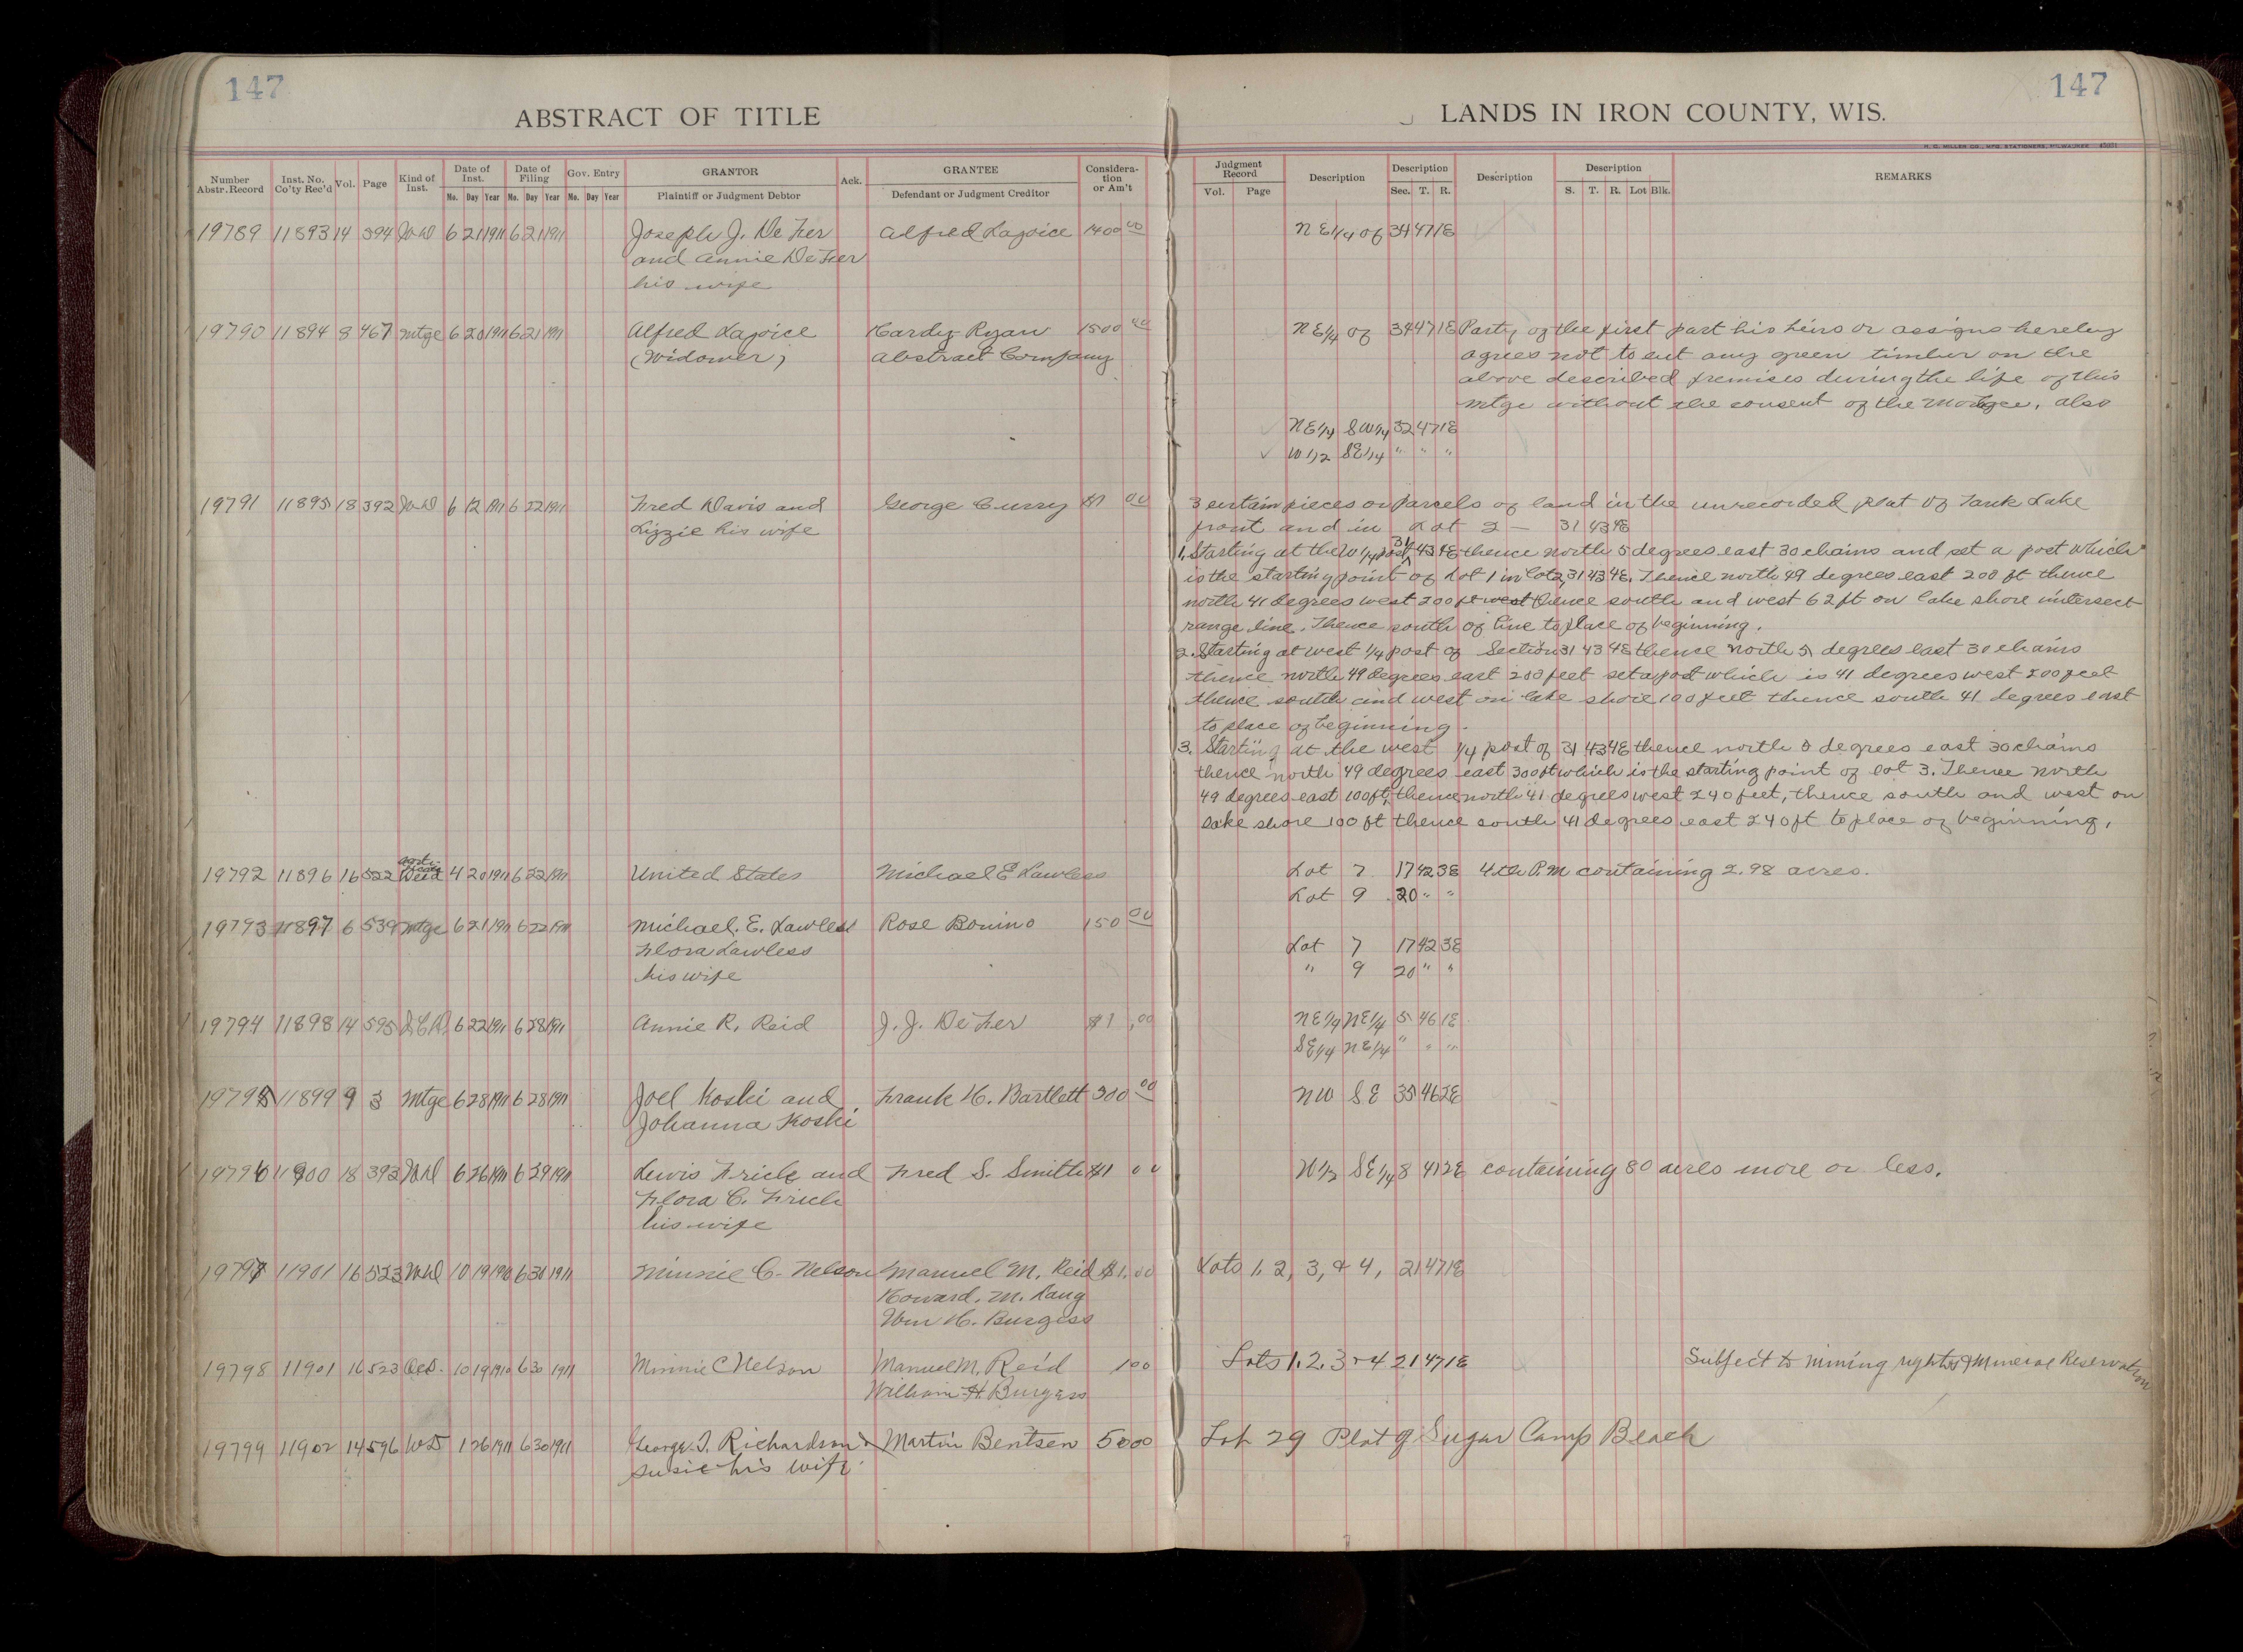 147
147
ABSTRACT OF TITLE
LANDS IN IRON COUNTY, WIS.
H. C. MILLER CO., MFG. STATIONERS, MILWAUKEE
Number Abstr. Record Inst. No. Co'ty Rec'd Vol. Page Kind of Inst. Date of Inst. Date of Filing Gov. Entry GRANTOR Ack. GRANTEE Consideration or Am't
Mo. Day Year Mo. Day Year Mo. Day Year Plaintiff or Judgment Debtor Defendant or Judgment Creditor
Judgment Record Description Description Description Description REMARKS
Vol. Page Sec. T. R. S. T. R. Lot Blk.
19789 11893 14 594 W D 6 21 1911 6 21 1911 Joseph J. De Fer Alfred Lajoice 1400 00 NE1/4 of 34 47 1E
and Annie De Fer
his wife
19790 11894 8 467 Mtge 6 20 1911 6 21 1911 Alfred Lajoice Hardy Ryan 1500 00 NE1/4 of 34 47 1E Party of the first part his heirs or assigns hereby
(Widower) Abstract Company agrees not to cut any green timber on the
above described premises during the life of this
mtge without the consent of the Mortgee, also
NE1/4 SW1/4 32 47 1E
W1/2 SE1/4 " " "
19791 11895 18 392 W D 6 12 1911 6 22 1911 Fred Davis and George Curry $1 00 3 certain pieces or parcels of land in the unrecorded plat of Tank Lake
Lizzie his wife front and in Lot 2 — 31 43 4E
1. Starting at the W 1/4 post 31 43 4E thence north 5 degrees east 30 chains and set a post which
is the starting point of Lot 1 in lot 2, 31 43 4E. Thence north 49 degrees east 200 ft thence
north 41 degrees west 200 ft west thence south and west 62 ft on lake shore intersect
range line. Thence south of line to place of beginning.
2. Starting at west 1/4 post of Section 31 43 4E thence north 5 degrees east 30 chains
thence north 49 degrees east 200 feet set a post which is 41 degrees west 200 feet
thence south and west on lake shore 100 feet thence south 41 degrees east
to place of beginning.
3. Starting at the west 1/4 post of 31 43 4E thence north 5 degrees east 30 chains
thence north 49 degrees east 300 ft which is the starting point of lot 3. Thence north
49 degrees east 100 ft, thence north 41 degrees west 240 feet, thence south and west on
lake shore 100 ft thence south 41 degrees east 240 ft to place of beginning.
19792 11896 16 522 Deed 4 20 1911 6 22 1911 United States Michael E Lawless Lot 7 17 42 3E 4th P.M containing 2.98 acres.
Lot 9 20 " "
19793 11897 6 539 Mtge 6 21 1911 6 22 1911 Michael. E. Lawless Rose Bonino 150 00
Flora Lawless Lot 7 17 42 3E
his wife " 9 20 " "
19794 11898 14 595 Q.C.D. 6 22 1911 6 28 1911 Annie R. Reid J. J. De Fer $1.00 NE1/4 NE1/4 5 46 1E
SE1/4 NE1/4 " " "
19795 11899 9 3 Mtge 6 28 1911 6 28 1911 Joel Koski and Frank H. Bartlett 300 00 NW SE 35 46 2E
Johanna Koski
19796 11900 18 393 W D 6 26 1911 6 29 1911 Lewis Frick and Fred S. Smith $1 00 W1/2 SE1/4 8 41 2E containing 80 acres more or less.
Flora C. Frick
his wife
19797 11901 16 523 W D 10 19 1910 6 30 1911 Minnie C. Nelson Manuel M. Reid $1.00 Lots 1, 2, 3, & 4, 21 47 1E
Howard. M. Lang
Wm H. Burgess
19798 11901 16 523 10 19 1910 6 30 1911 Minnie C Nelson Manuel M. Reid 1 00 Lots 1. 2. 3 & 4 21 47 1E Subject to mining rights & Mineral Reservation
William H. Burgess
19799 11902 14 596 W D 1 26 1911 6 30 1911 George T. Richardson & Martin Bentsen 50 00 Lot 29 Plat of Sugar Camp Beach
Susie his wife